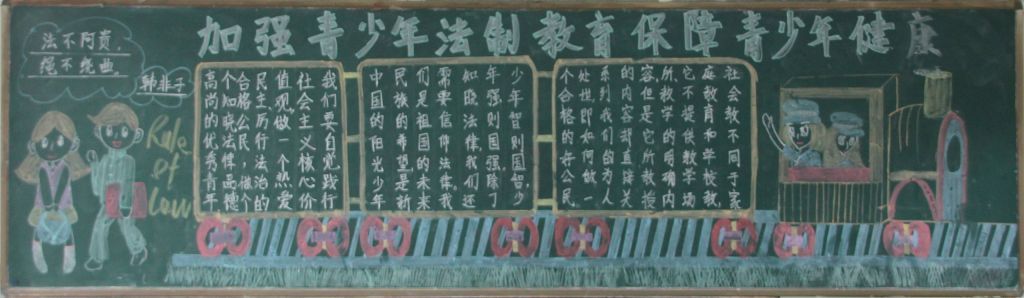 加强青少年法制教育保障青少年健康
法不阿贵,
绳不绕曲。
韩非子
Rule
of
Law
社会教不同于家
庭教育和学校教,
它不提供教学场
所,教学的明确内
容,但是它所教授
的内容却直接关
系到我们的为人
处世,即如何做一
个合格的好公民。
少年智则国智,少
年强则国强。除了
知晓法律,我们还
需要信仰法律。我
们是祖国的未来
民族的希望,是新
中国的阳光少年
我们要自觉践行
社会主义核心价
值观,做一个热爱
民主,厉行法治的
合格公民,做个
个知晓法律,高德
高尚的优秀青年